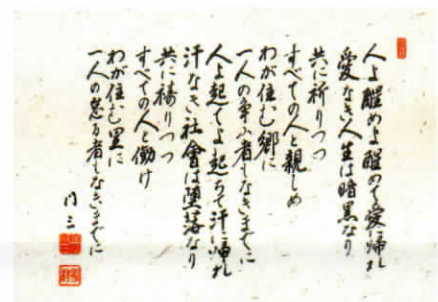 人よ醒めよ醒めて愛に帰れ
愛なき人生は暗黒なり
共に祈りつつ
すべての人と親しめ
わが住む郷に
一人の争ふ者もなきまでに
人よ起てよ起ちて汗に帰れ
汗なき社會は堕落なり
共に祷りつつ
すべての人と働け
わが住む里に
一人の怠る者もなきまでに
門三